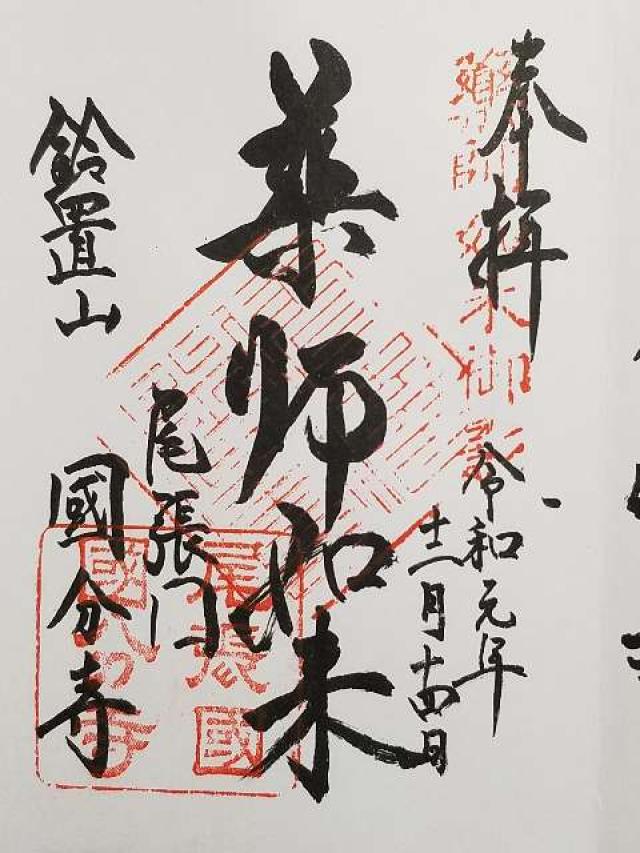 奉拝
令和元年
十二月十四日
薬師如来
鈴置山
尾張
國分寺
尾張國
國分寺